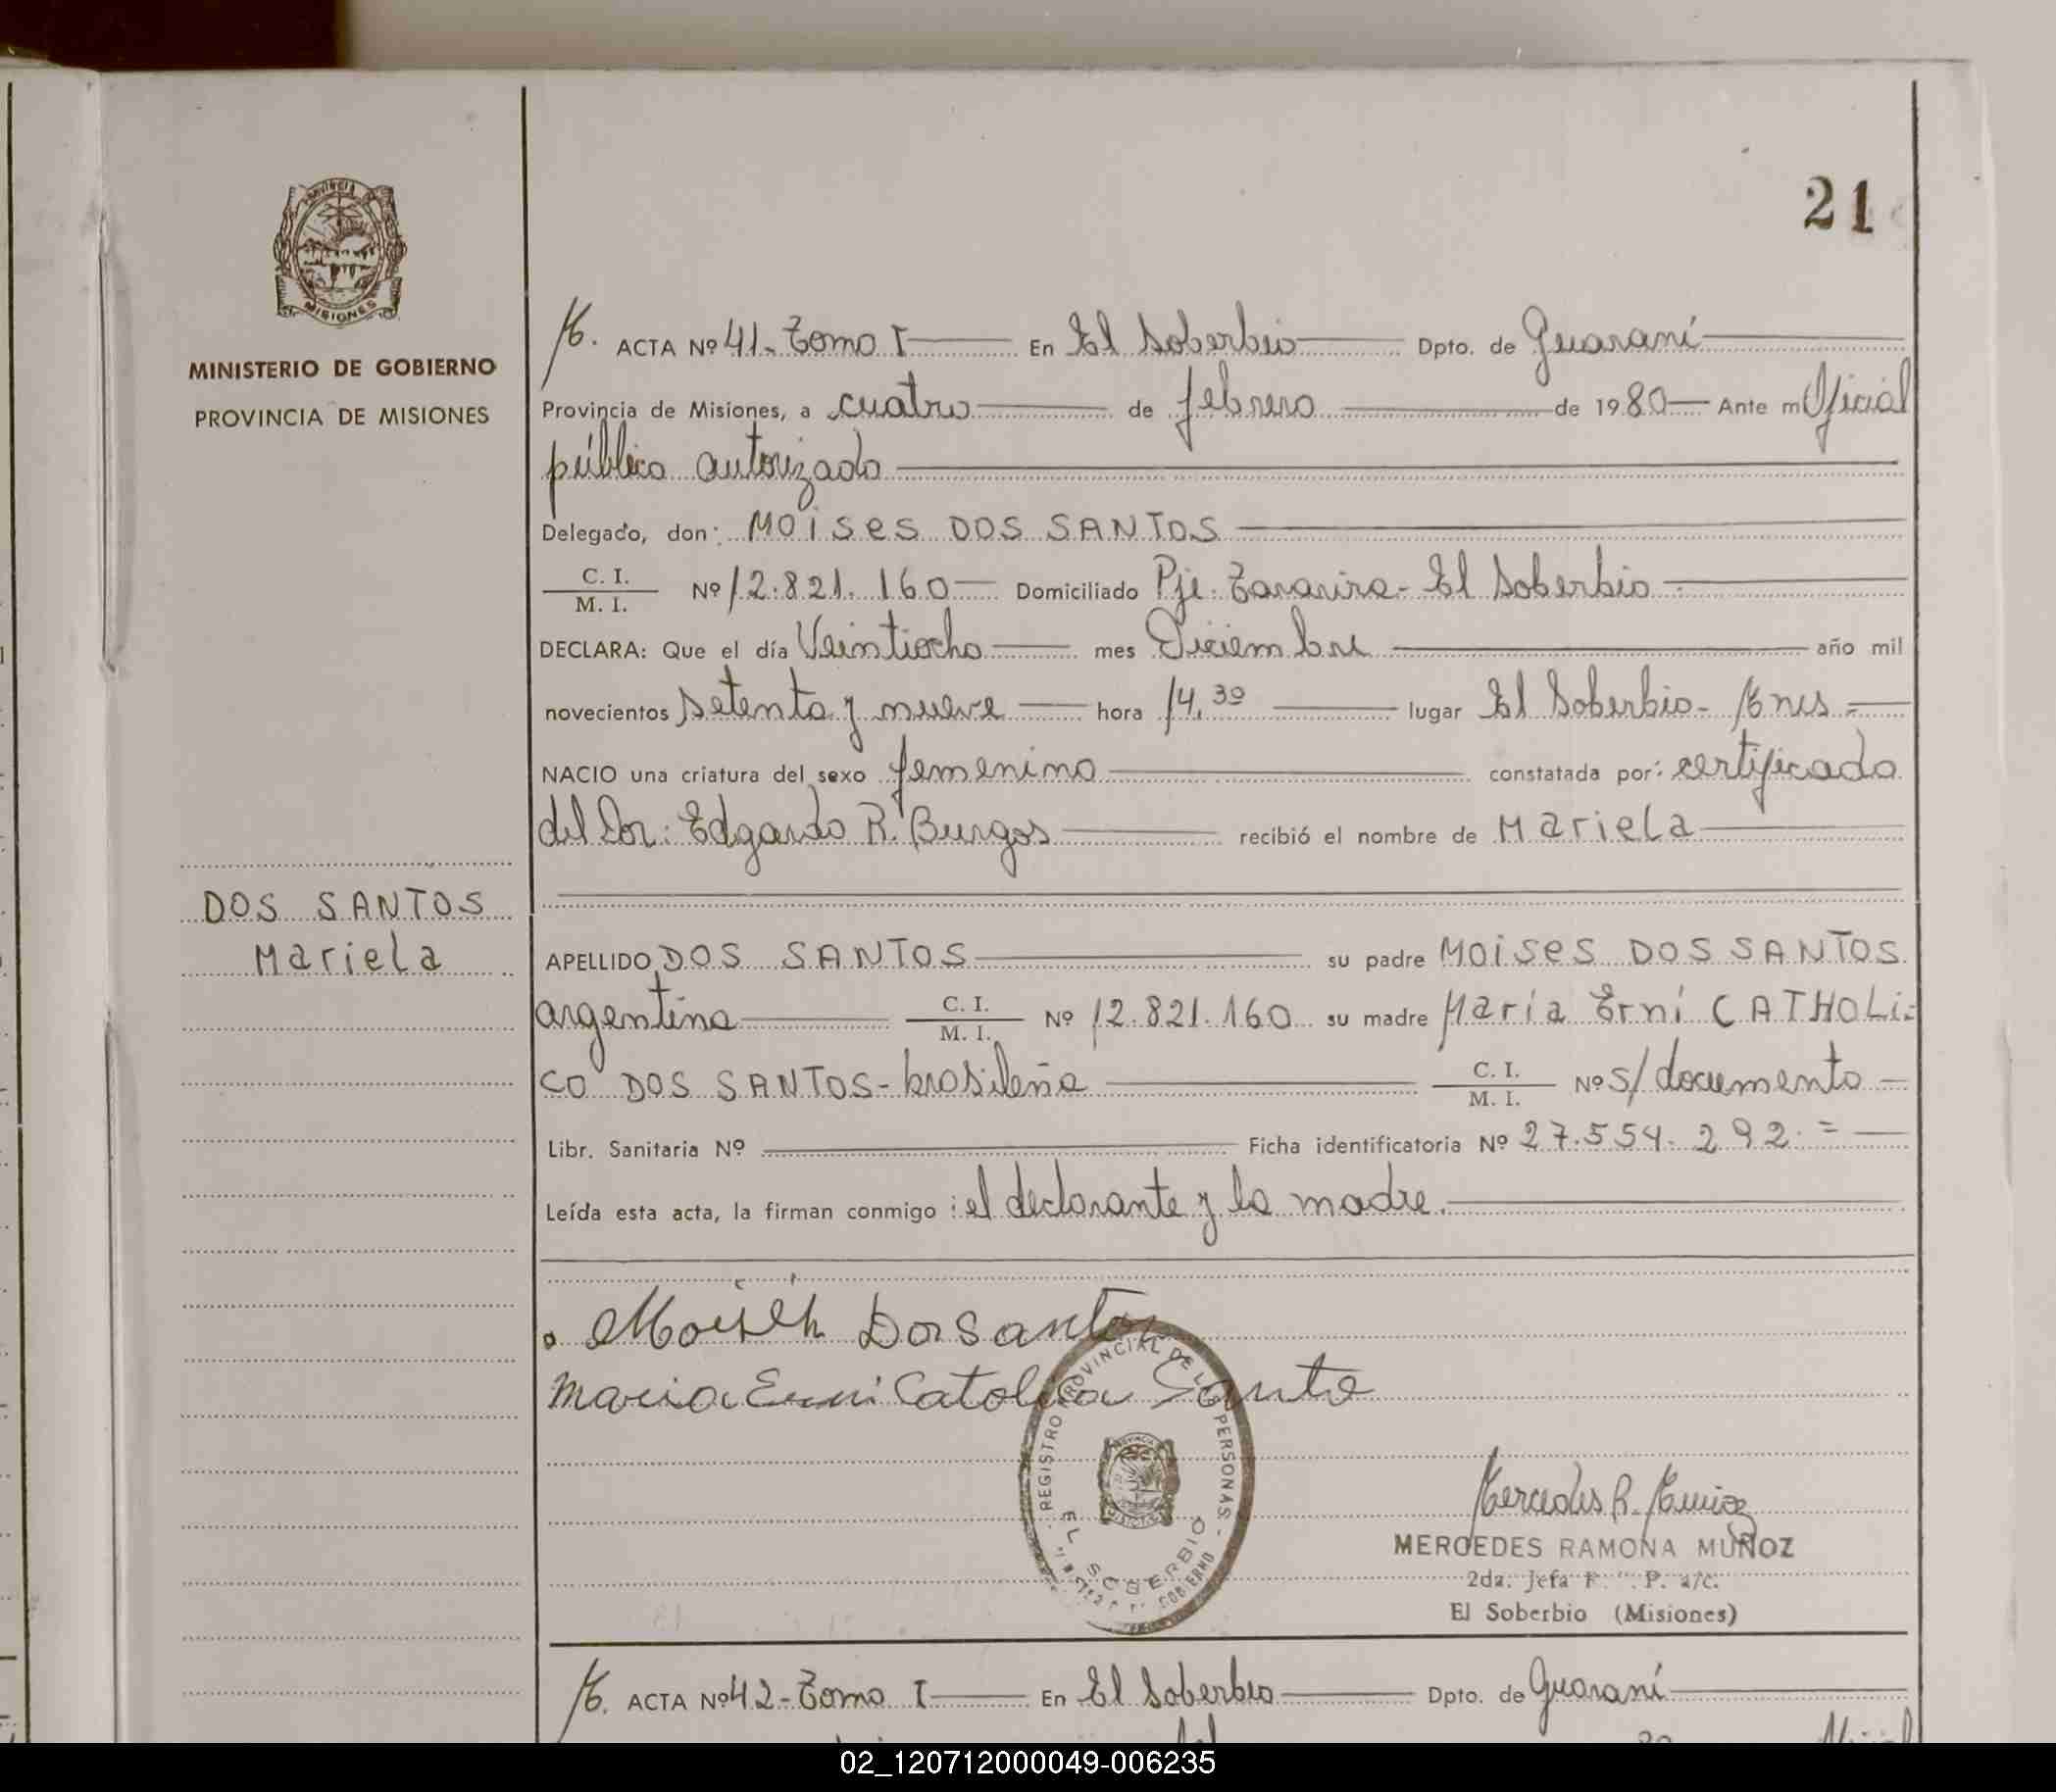 21
PROVINCIA
MISIONES
MINISTERIO DE GOBIERNO
PROVINCIA DE MISIONES
DOS SANTOS
Mariela
M. ACTA Nº 41-Tomo I En El Soberbio Dpto. de Guaraní
Provincia de Misiones, a cuatro de febrero de 1980 Ante m Oficial
público autorizado
Delegado, don: MOISES DOS SANTOS
C. I.
M. I. Nº 12.821.160 Domiciliado Pje. - El Soberbio
DECLARA: Que el día Veintiocho mes Diciembre año mil
novecientos setenta y nueve hora 14,30 lugar El Soberbio- Mnes
NACIO una criatura del sexo femenino constatada por: certificado
del Dor: Edgardo R. Burgos recibió el nombre de Mariela
APELLIDO DOS SANTOS su padre MOISES DOS SANTOS
argentino C. I.
M. I. Nº 12.821.160 su madre María Erní CATHOLI=
CO DOS SANTOS-brasileña C. I.
M. I. Nº s/documento
Libr. Sanitaria Nº Ficha identificatoria Nº 27.554.292.=
Leída esta acta, la firman conmigo: el declarante y la madre.
Dos santos
Maria Erni Catolica Santo
REGISTRO PROVINCIAL DE LAS PERSONAS
EL SOBERBIO
GOBIERNO
Mercedes R. Muñoz
MERCEDES RAMONA MUÑOZ
2da. Jefa R. P. a/c.
El Soberbio (Misiones)
M. ACTA Nº 42-Tomo I En El Soberbio Dpto. de Guaraní
02_120712000049-006235